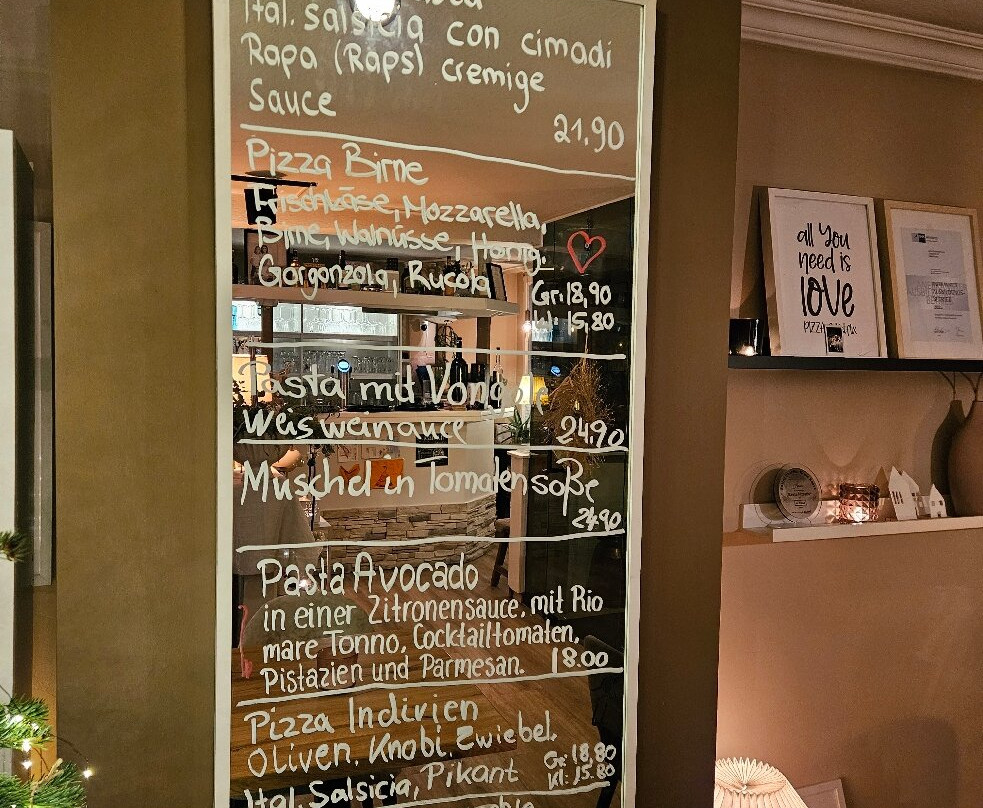 Ital. Salsicia con cimadi
Rapa (Raps) cremige
Sauce
21,90
Pizza Birne
Frischkäse, Mozzarella,
Birne, Walnüsse, Honig.
Gorgonzola, Rucola
Gr: 18,90
Kl: 15,80
Pasta mit Vongole
Weisweinauce 24.90
Muschel in Tomatensoße
24.90
Pasta Avocado
in einer Zitronensauce, mit Rio
mare Tonno, Cocktailtomaten,
Pistazien und Parmesan. 18.00
Pizza Indivien
Oliven, Knobi, Zwiebel,
Ital. Salsicia, Pikant
Gr: 18,80
Kl: 15.80
all You
need is
LOVE